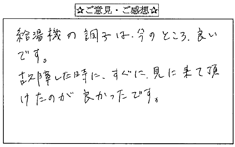 ☆ご意見・ご感想☆
給湯機の調子は、今のところ、良い
です。
故障した時に、すぐに、見に来て頂
けたのが良かったです。